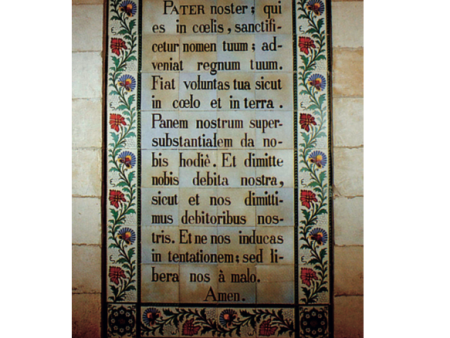 PATER noster; qui
es in cœlis, sanctifi-
cetur nomen tuum; ad-
veniat regnum tuum.
Fiat voluntas tua sicut
in cœlo et in terra.
Panem nostrum super-
substantialem da no-
bis hodiè. Et dimitte
nobis debita nostra,
sicut et nos dimitti-
mus debitoribus nos-
tris. Et ne nos inducas
in tentationem; sed li-
bera nos à malo.
Amen.